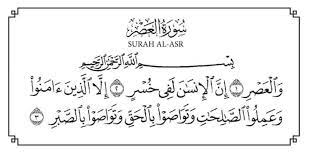 سُورَةُ العَصْرِ
SURAH AL-ASR
بِسْمِ ٱللَّهِ ٱلرَّحْمَٰنِ ٱلرَّحِيمِ
وَٱلْعَصْرِ ١ إِنَّ ٱلْإِنسَٰنَ لَفِى خُسْرٍ ٢ إِلَّا ٱلَّذِينَ ءَامَنُوا۟
وَعَمِلُوا۟ ٱلصَّٰلِحَٰتِ وَتَوَاصَوْا۟ بِٱلْحَقِّ وَتَوَاصَوْا۟ بِٱلصَّبْرِ ٣